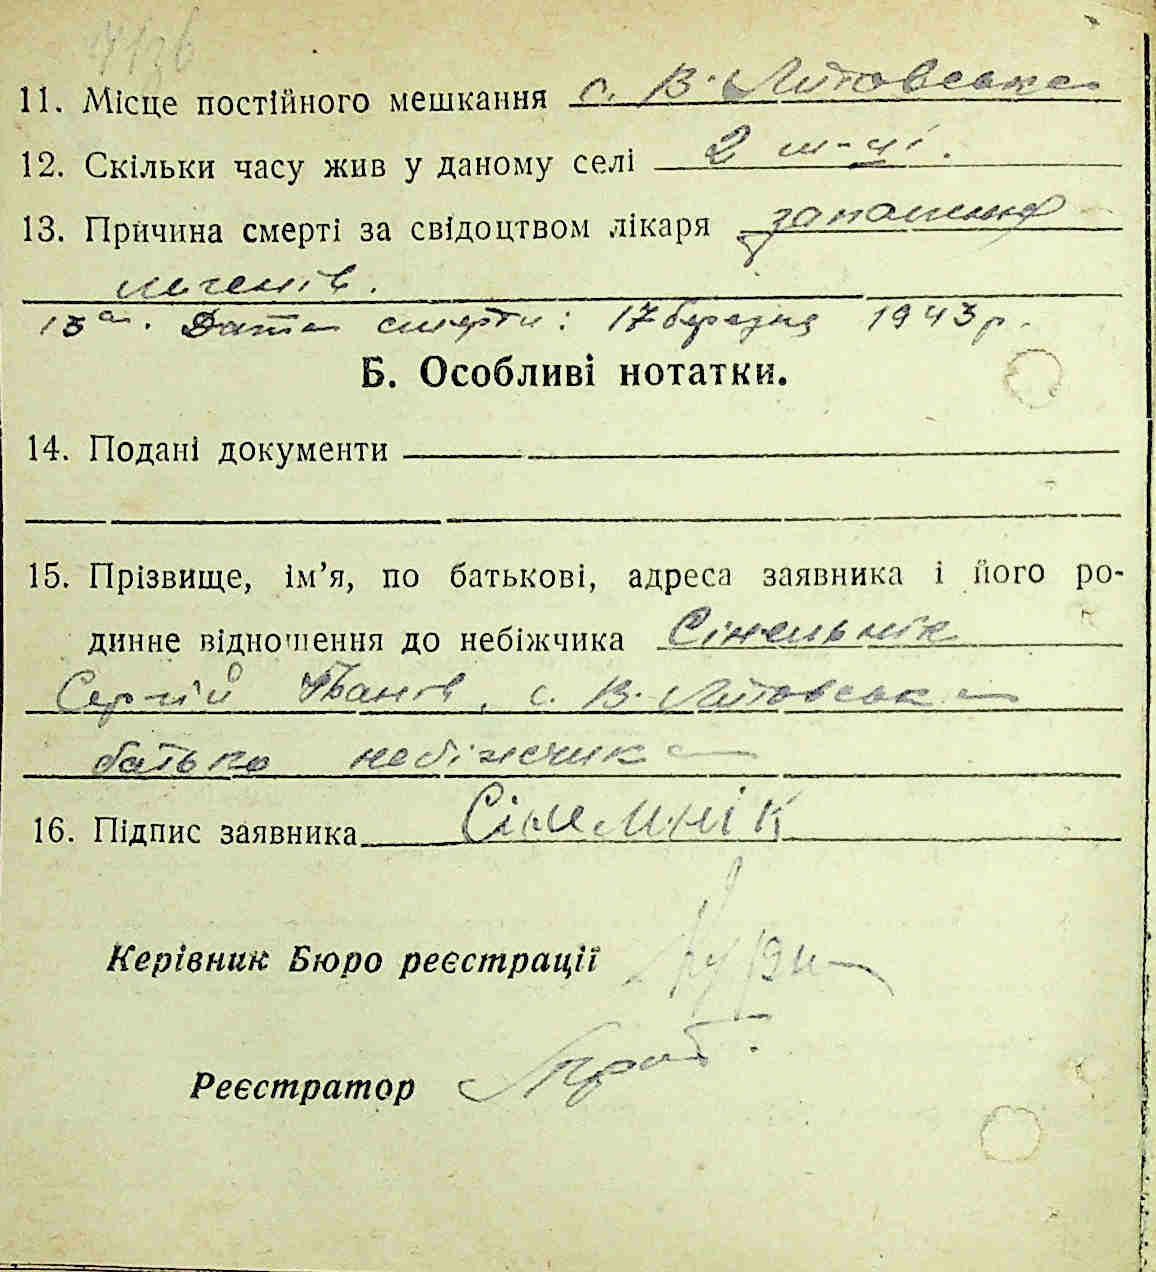 11. Місце постійного мешкання с. В. Литовська
12. Скільки часу жив у даному селі 2 м-ці.
13. Причина смерті за свідоцтвом лікаря запалення
легенів.
13а. Дата смерти: 17 березня 1943 р.
Б. Особливі нотатки.
14. Подані документи
15. Прізвище, ім’я, по батькові, адреса заявника і його ро-
динне відношення до небіжчика Сінельнік
Сергій Іванов, с. В. Литовська
батько небіжчика
16. Підпис заявника Сінельнік
Керівник Бюро реєстрації
Реєстратор